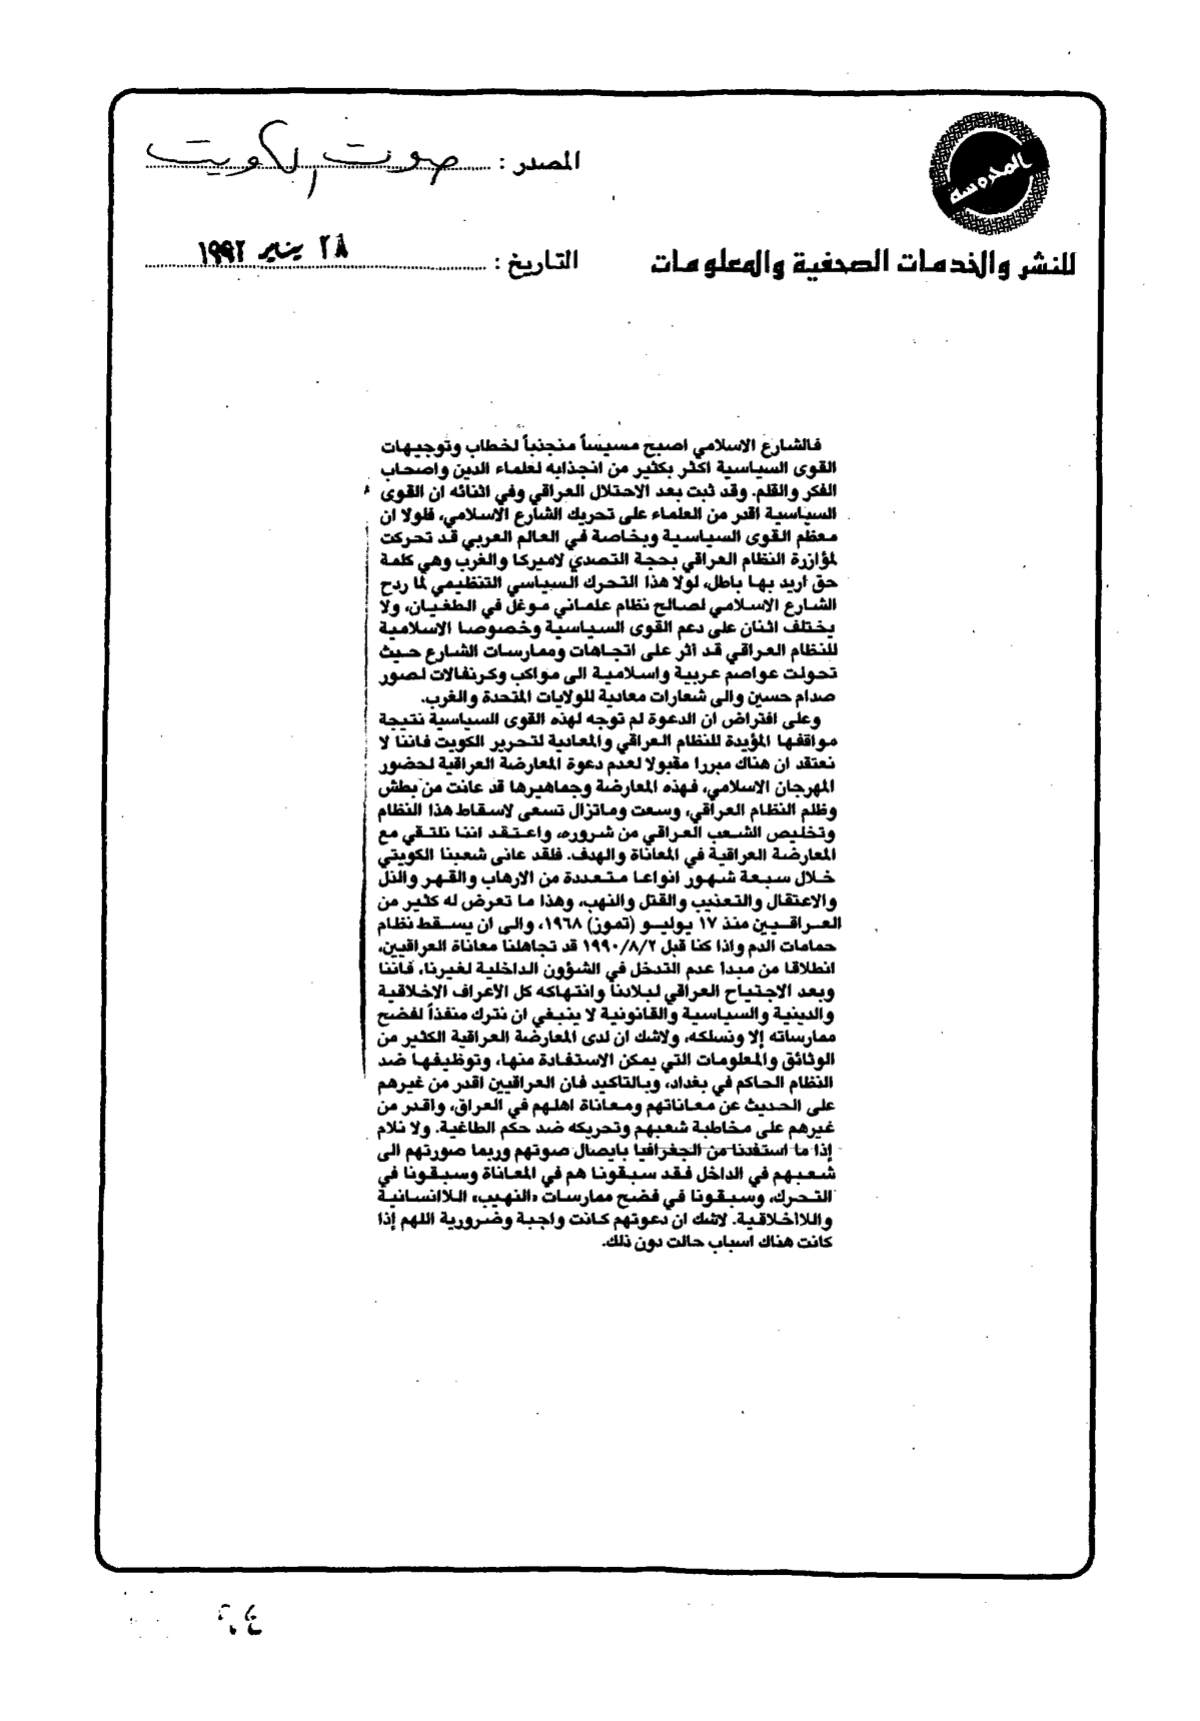 المحروسة
المصدر : صوت الكويت
للنشر والخدمات الصحفية والمعلومات
التاريخ : ٢٨ يناير ١٩٩٢
فالشارع الاسلامي اصبح مسيساً منجذباً لخطاب وتوجيهات
القوى السياسية اكثر بكثير من انجذابه لعلماء الدين واصحاب
الفكر والقلم. وقد ثبت بعد الاحتلال العراقي وفي اثنائه ان القوى
السياسية اقدر من العلماء على تحريك الشارع الاسلامي، فلولا ان
معظم القوى السياسية وبخاصة في العالم العربي قد تحركت
لمؤازرة النظام العراقي بحجة التصدي لاميركا والغرب وهي كلمة
حق اريد بها باطل، لولا هذا التحرك السياسي التنظيمي لما ردح
الشارع الاسلامي لصالح نظام علماني موغل في الطغيان، ولا
يختلف اثنان على دعم القوى السياسية وخصوصا الاسلامية
للنظام العراقي قد أثر على اتجاهات وممارسات الشارع حيث
تحولت عواصم عربية واسلامية الى مواكب وكرنفالات لصور
صدام حسين والى شعارات معادية للولايات المتحدة والغرب.
وعلى افتراض ان الدعوة لم توجه لهذه القوى السياسية نتيجة
مواقفها المؤيدة للنظام العراقي والمعادية لتحرير الكويت فاننا لا
نعتقد ان هناك مبررا مقبولا لعدم دعوة المعارضة العراقية لحضور
المهرجان الاسلامي، فهذه المعارضة وجماهيرها قد عانت من بطش
وظلم النظام العراقي، وسعت وماتزال تسعى لاسقاط هذا النظام
وتخليص الشعب العراقي من شروره، واعتقد اننا نلتقي مع
المعارضة العراقية في المعاناة والهدف. فلقد عانى شعبنا الكويتي
خلال سبعة شهور انواعا متعددة من الارهاب والقهر والذل
والاعتقال والتعذيب والقتل والنهب، وهذا ما تعرض له كثير من
العراقيين منذ ١٧ يوليو (تموز) ١٩٦٨، والى ان يسقط نظام
حمامات الدم واذا كنا قبل ١٩٩٠/٨/٢ قد تجاهلنا معاناة العراقيين،
انطلاقا من مبدأ عدم التدخل في الشؤون الداخلية لغيرنا، فاننا
وبعد الاجتياح العراقي لبلادنا وانتهاكه كل الاعراف الاخلاقية
والدينية والسياسية والقانونية لا ينبغي ان نترك منفذاً لفضح
ممارساته إلا ونسلكه، ولاشك ان لدى المعارضة العراقية الكثير من
الوثائق والمعلومات التي يمكن الاستفادة منها، وتوظيفها ضد
النظام الحاكم في بغداد، وبالتاكيد فان العراقيين اقدر من غيرهم
على الحديث عن معاناتهم ومعاناة اهلهم في العراق، واقدر من
غيرهم على مخاطبة شعبهم وتحريكه ضد حكم الطاغية. ولا نلام
إذا ما استفدنا من الجغرافيا بايصال صوتهم وربما صورتهم الى
شعبهم في الداخل فقد سبقونا هم في المعاناة وسبقونا في
التحرك، وسبقونا في فضح ممارسات «النهيب» اللاانسانية
واللااخلاقية. لاشك ان دعوتهم كانت واجبة وضرورية اللهم إذا
كانت هناك اسباب حالت دون ذلك.